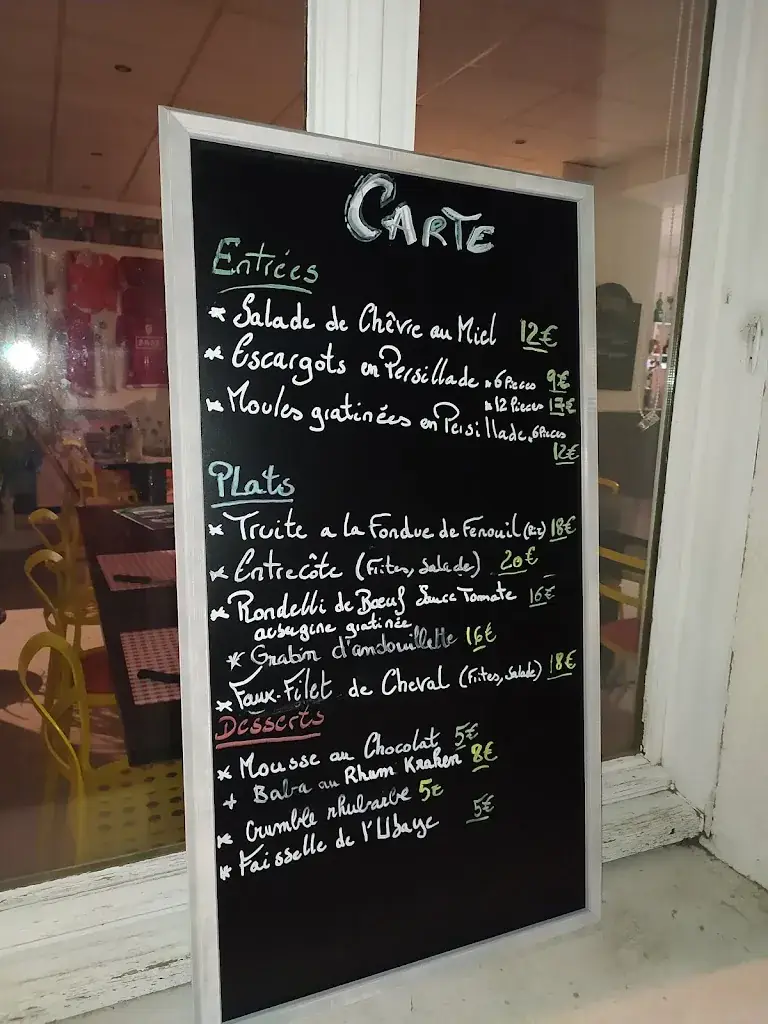 CARTE
Entrées
* Salade de Chèvre au Miel 12€
* Escargots en Persillade * 6 Pieces 9€
* 12 Pieces 17€
* Moules gratinées en Persillade * 6 Pieces
12€
PLats
* Truite a la Fondue de Fenouil (Riz) 18€
* Entrecôte (Frites, Salade) 20€
* Rondelli de Bœuf Sauce Tomate 16€
aubergine gratinée
* Gratin d'andouillette 16€
* Faux-Filet de Cheval (Frites, Salade) 18€
Desserts
* Mousse au Chocolat 5€
+ Baba au Rhum Kraken 8€
* Crumble rhubarbe 5€
* Faisselle de l'Ubaye 5€